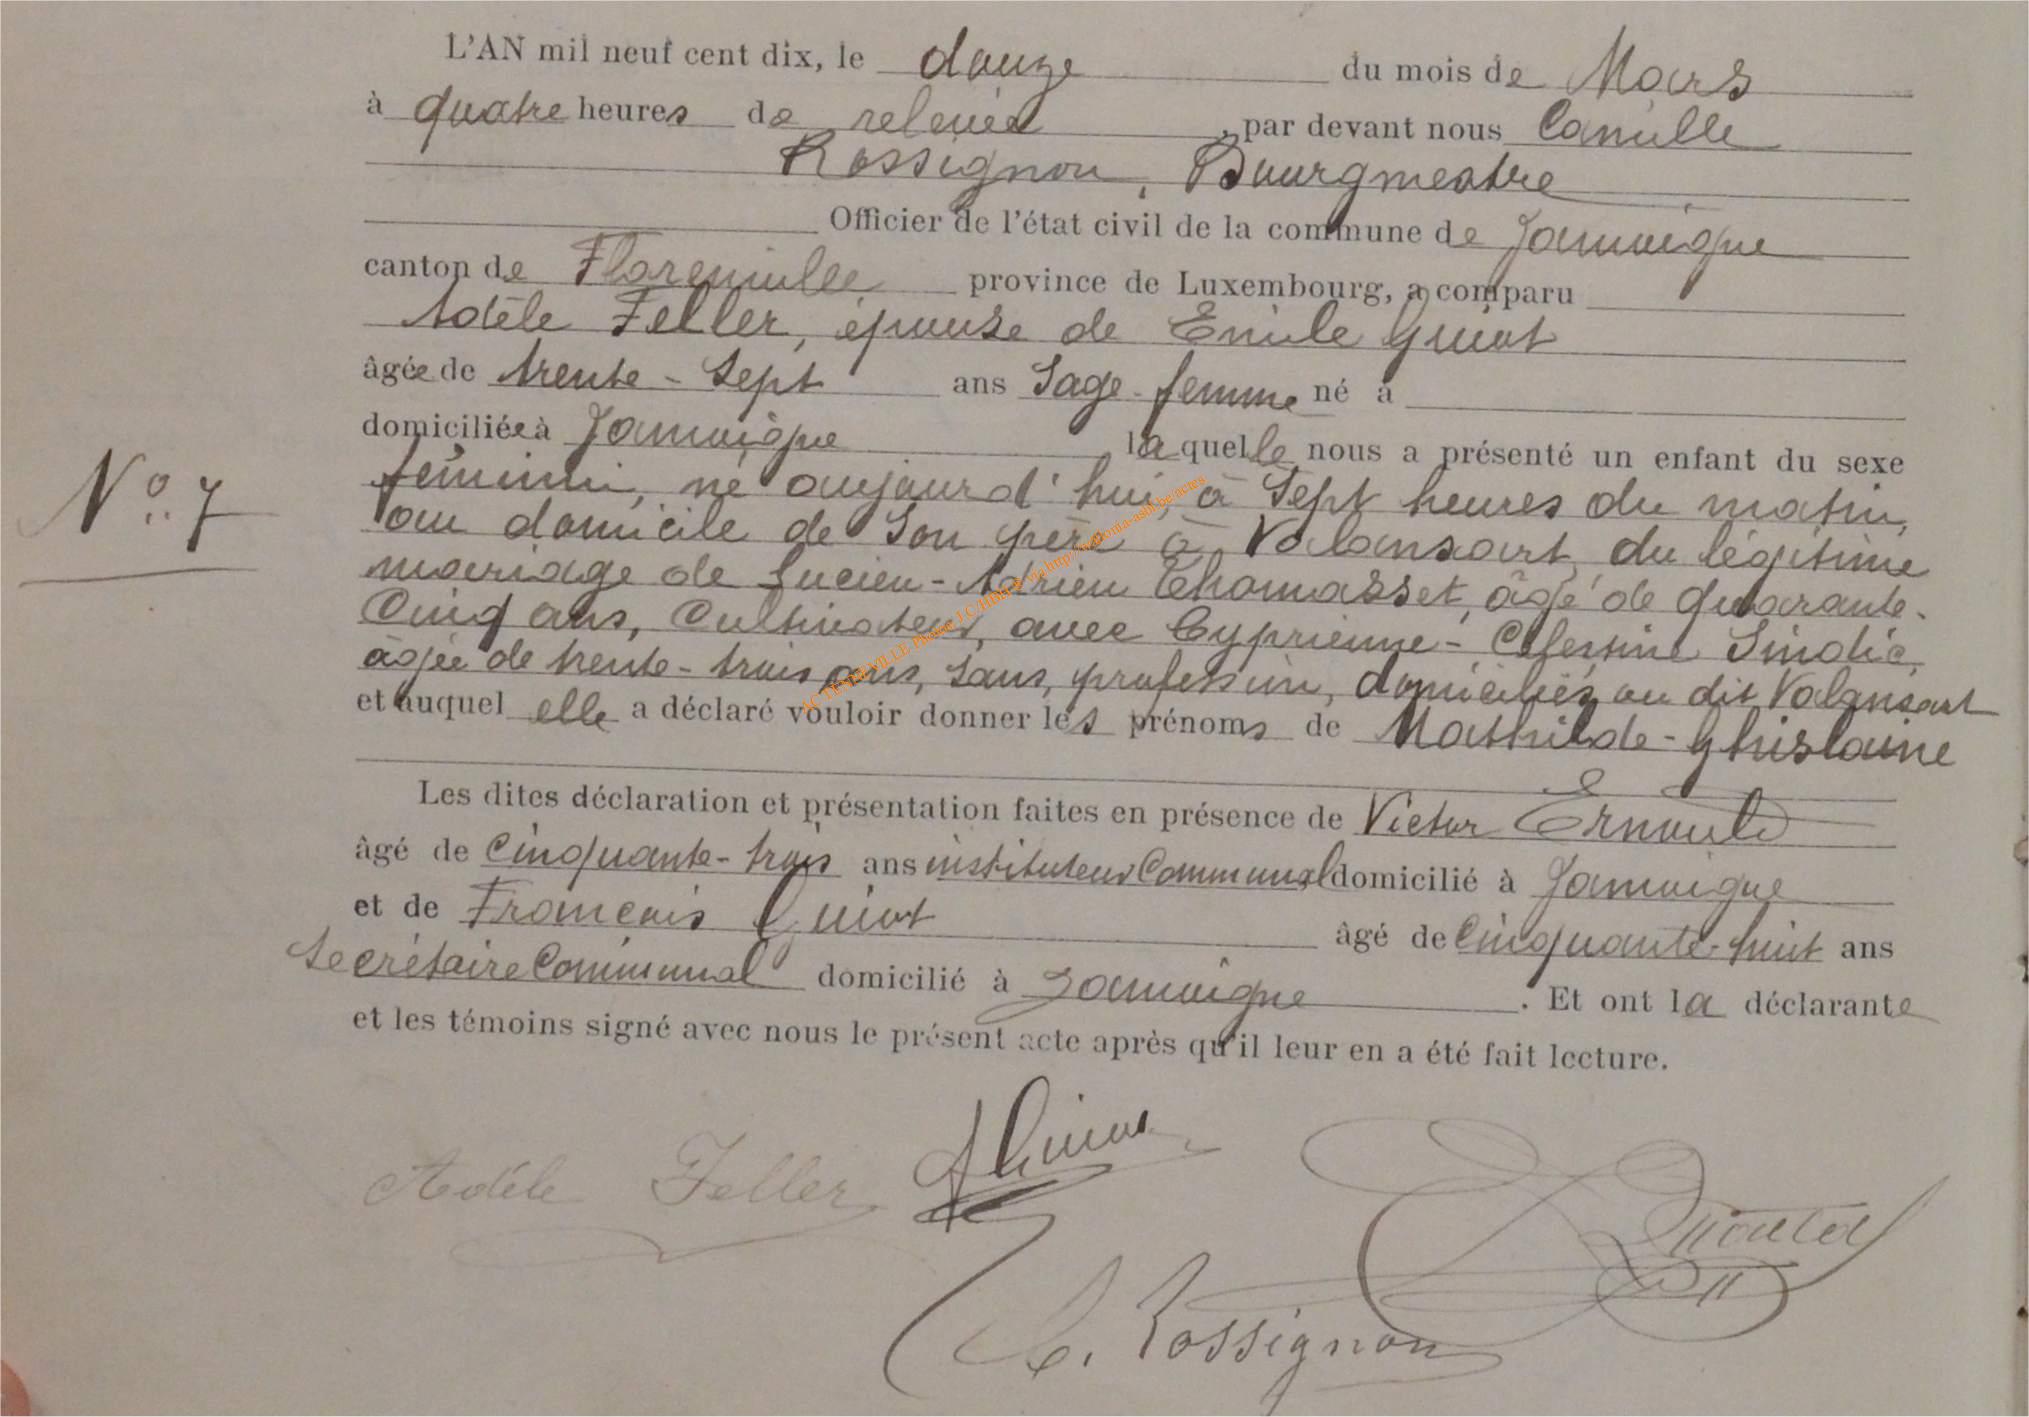 L'AN mil neuf cent dix, le douze du mois de Mars
à quatre heures de relevée, par devant nous Camille
Rossignon, Bourgmestre
Officier de l'état civil de la commune de Jamoigne
canton de Florenville province de Luxembourg, a comparu
Adèle Feller, épouse de Emile Guiot
âgée de trente-sept ans Sage-femme né à
domiciliée à Jamoigne laquelle nous a présenté un enfant du sexe
N° 7
féminin, né aujourd'hui, à Sept heures du matin,
au domicile de Son père à Valansart, du légitime
mariage de Lucien-Adrien Thomasset, âgé de quarante-
Cinq ans, Cultivateur, avec Cyprienne-Célestine Sindic,
âgée de trente-trois ans, Sans, profession, domiciliés au dit Valansart
et auquel elle a déclaré vouloir donner les prénoms de Mathilde-Ghislaine
Les dites déclaration et présentation faites en présence de Victor Ernould
âgé de Cinquante-trois ans instituteur Communal domicilié à Jamoigne
et de François Guiot âgé de Cinquante-huit ans
Secrétaire Communal domicilié à Jamoigne. Et ont la déclarante
et les témoins signé avec nous le présent acte après qu'il leur en a été fait lecture.
Adèle Feller
C. Rossignon